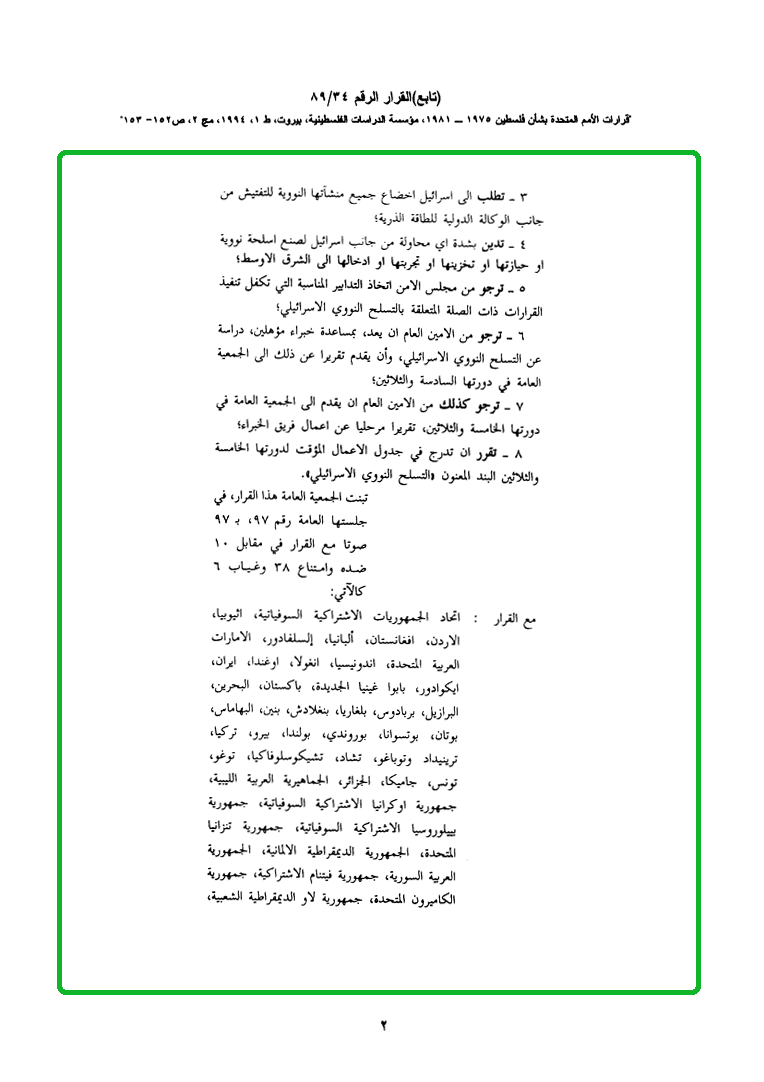 (تابع)القرار الرقم ٨٩/٣٤
"قرارات الأمم المتحدة بشأن فلسطين ١٩٧٥ ــ ١٩٨١، مؤسسة الدراسات الفلسطينية، بيروت، ط ١، ١٩٩٤، مج ٢، ص١٥٢- ١٥٣"
٣ ـ تطلب الى اسرائيل اخضاع جميع منشآتها النووية للتفتيش من
جانب الوكالة الدولية للطاقة الذرية؛
٤ ـ تدين بشدة اي محاولة من جانب اسرائيل لصنع اسلحة نووية
او حيازتها او تخزينها او تجربتها او ادخالها الى الشرق الاوسط؛
٥ ـ ترجو من مجلس الامن اتخاذ التدابير المناسبة التي تكفل تنفيذ
القرارات ذات الصلة المتعلقة بالتسلح النووي الاسرائيلي؛
٦ ـ ترجو من الامين العام ان يعد، بمساعدة خبراء مؤهلين، دراسة
عن التسلح النووي الاسرائيلي، وأن يقدم تقريرا عن ذلك الى الجمعية
العامة في دورتها السادسة والثلاثين؛
٧ ـ ترجو كذلك من الامين العام ان يقدم الى الجمعية العامة في
دورتها الخامسة والثلاثين، تقريرا مرحليا عن اعمال فريق الخبراء؛
٨ ـ تقرر ان تدرج في جدول الاعمال المؤقت لدورتها الخامسة
والثلاثين البند المعنون «التسلح النووي الاسرائيلي».
تبنت الجمعية العامة هذا القرار، في
جلستها العامة رقم ٩٧، بـ ٩٧
صوتا مع القرار في مقابل ١٠
ضده وامتناع ٣٨ وغياب ٦
كالآتي:
مع القرار : اتحاد الجمهوريات الاشتراكية السوفياتية، اثيوبيا،
الاردن، افغانستان، ألبانيا، إلسلفادور، الامارات
العربية المتحدة، اندونيسيا، انغولا، اوغندا، ايران،
ايكوادور، بابوا غينيا الجديدة، باكستان، البحرين،
البرازيل، بربادوس، بلغاريا، بنغلادش، بنين، البهاماس،
بوتان، بوتسوانا، بوروندي، بولندا، بيرو، تركيا،
ترينيداد وتوباغو، تشاد، تشيكوسلوفاكيا، توغو،
تونس، جاميكا، الجزائر، الجماهيرية العربية الليبية،
جمهورية اوكرانيا الاشتراكية السوفياتية، جمهورية
بييلوروسيا الاشتراكية السوفياتية، جمهورية تنزانيا
المتحدة، الجمهورية الديمقراطية الالمانية، الجمهورية
العربية السورية، جمهورية فيتنام الاشتراكية، جمهورية
الكاميرون المتحدة، جمهورية لاو الديمقراطية الشعبية،
٢